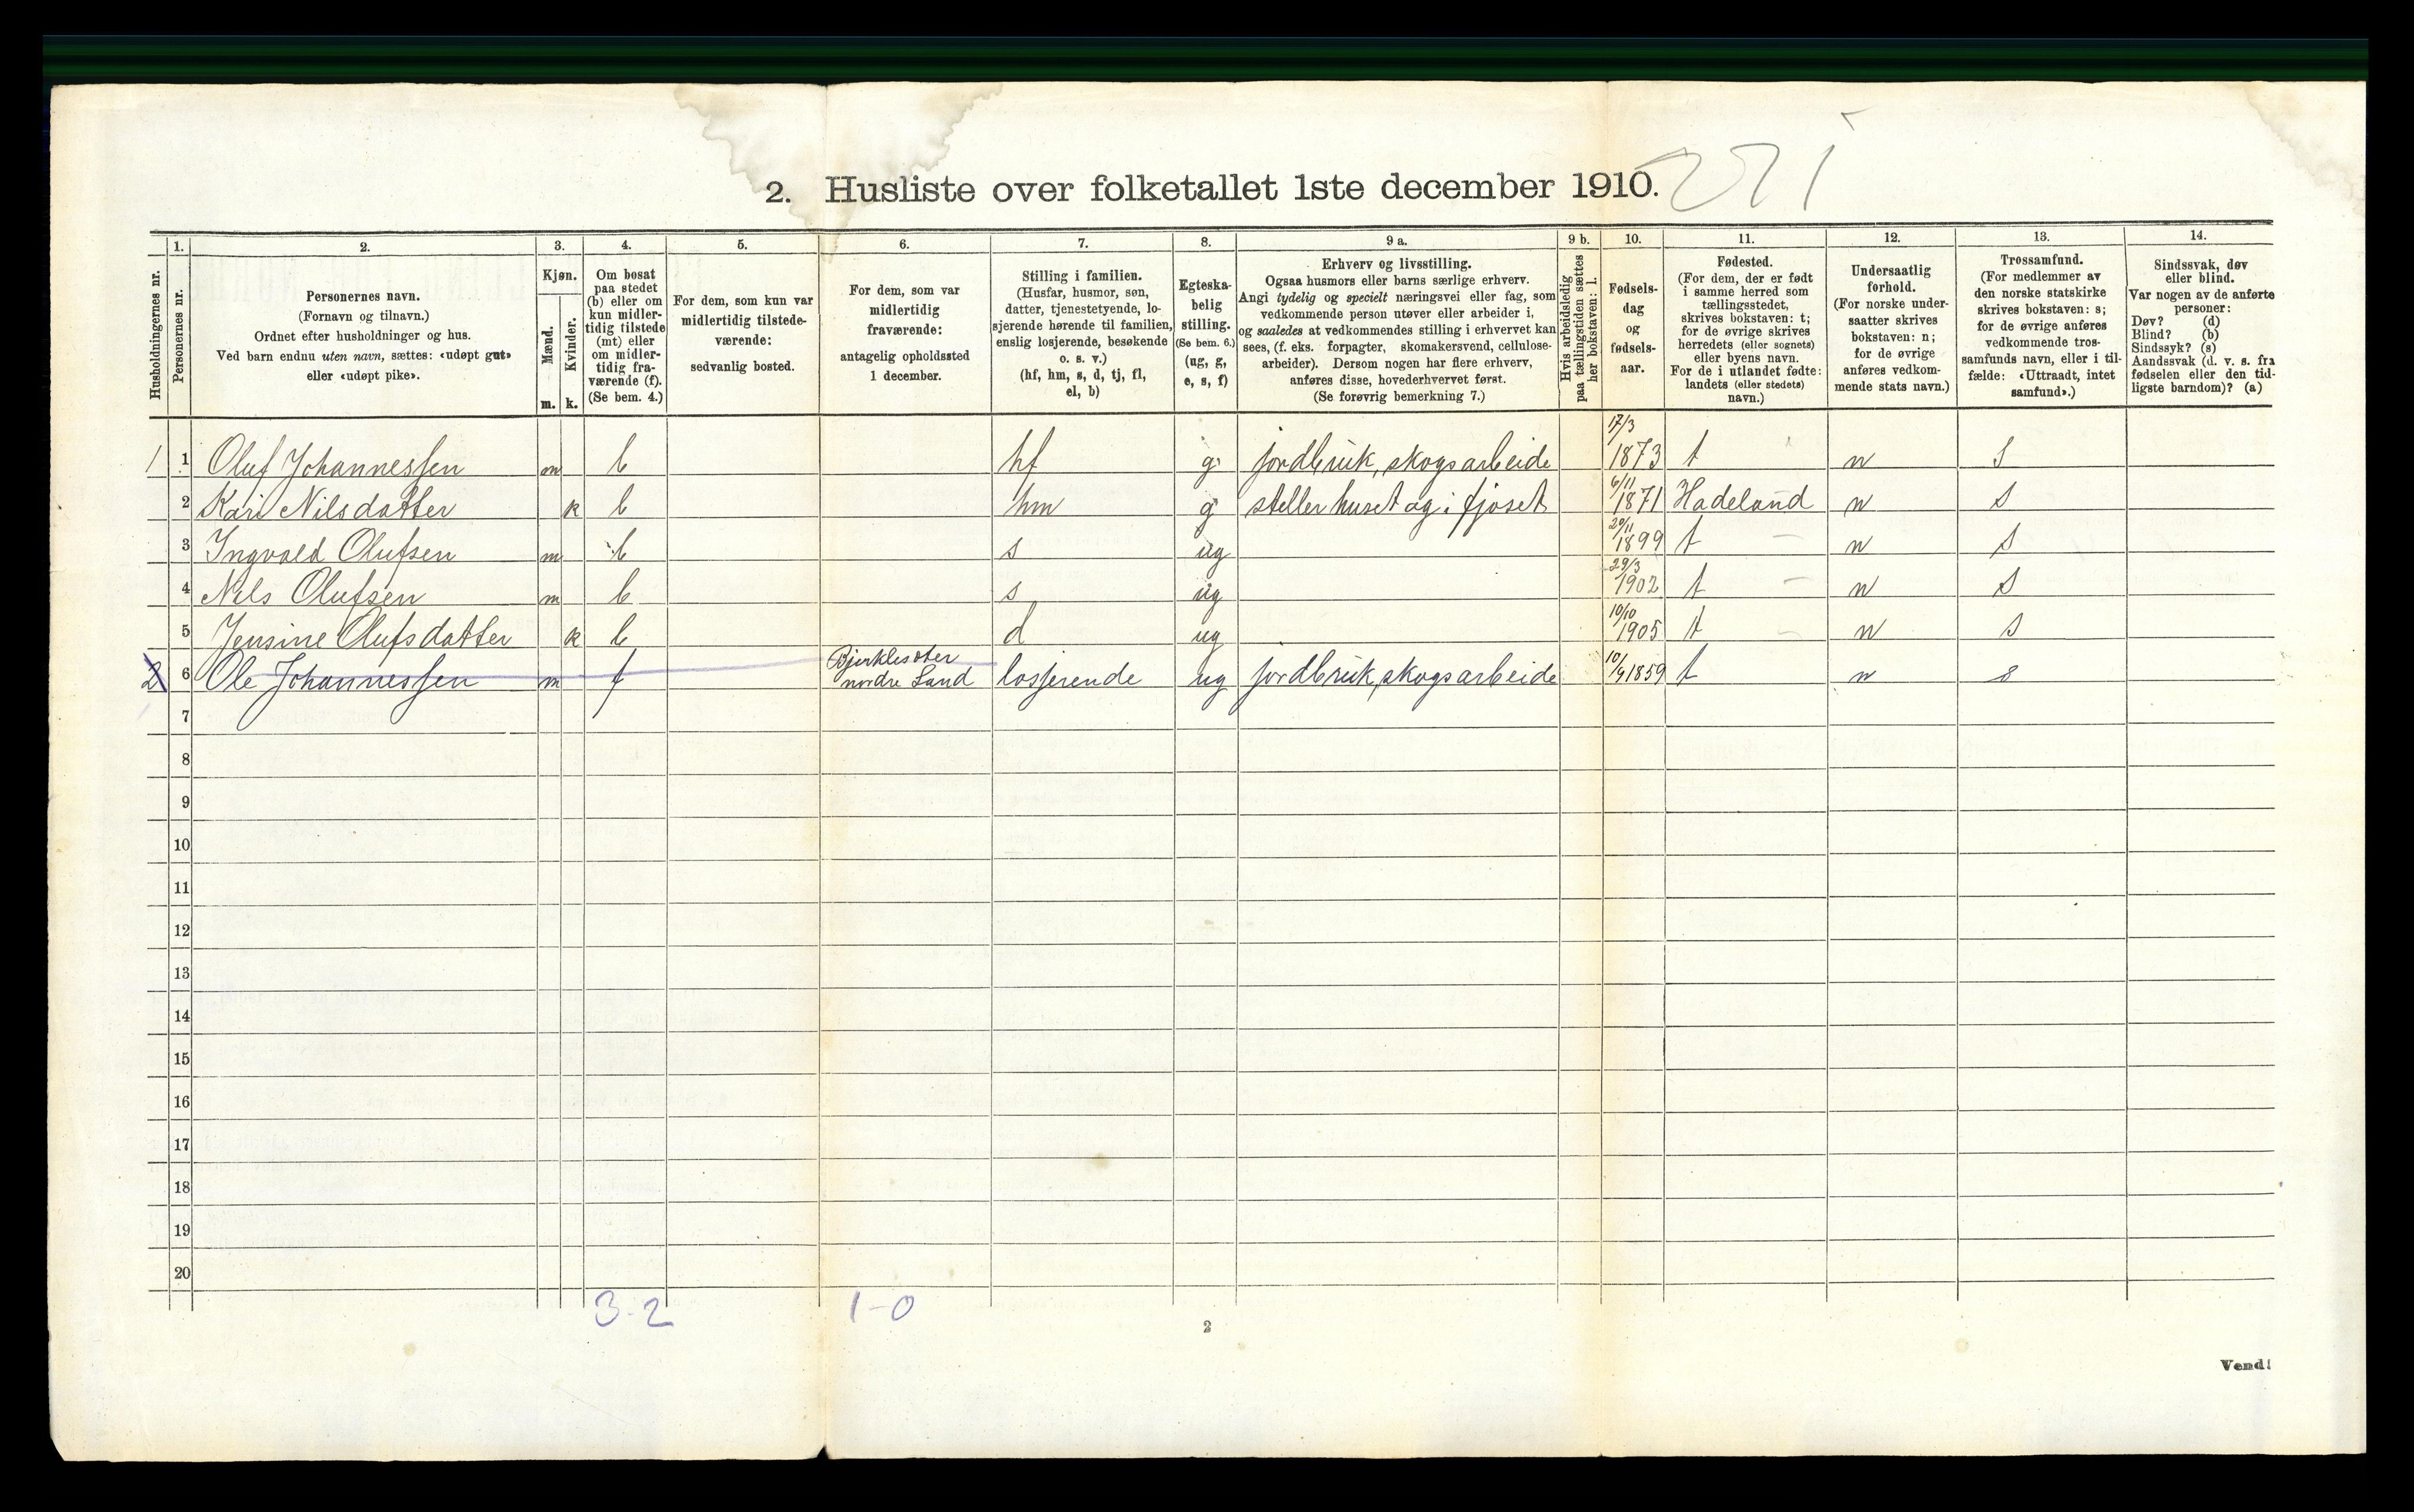 2. Husliste over folketallet 1ste december 1910.
Husholdningernes nr.
1.
Personernes nr.
2.
Personernes navn.
(Fornavn og tilnavn.)
Ordnet efter husholdninger og hus.
Ved barn endnu uten navn, sættes: «udøpt gut»
eller «udøpt pike».
3.
Kjøn.
Mænd.
Kvinder.
m. k.
4.
Om bosat
paa stedet
(b) eller om
kun midler-
tidig tilstede
(mt) eller
om midler-
tidig fra-
værende (f).
(Se bem. 4.)
5.
For dem, som kun var
midlertidig tilstede-
værende:
sedvanlig bosted.
6.
For dem, som var
midlertidig
fraværende:
antagelig opholdssted
1 december.
7.
Stilling i familien.
(Husfar, husmor, søn,
datter, tjenestetyende, lo-
sjerende hørende til familien,
enslig losjerende, besøkende
o. s. v.)
(hf, hm, s, d, tj, fl,
el, b)
8.
Egteska-
belig
stilling.
(Se bem. 6.)
(ug, g,
e, s, f)
9 a.
Erhverv og livsstilling.
Ogsaa husmors eller barns særlige erhverv.
Angi tydelig og specielt næringsvei eller fag, som
vedkommende person utøver eller arbeider i,
og saaledes at vedkommendes stilling i erhvervet kan
sees, (f. eks. forpagter, skomakersvend, cellulose-
arbeider). Dersom nogen har flere erhverv,
anføres disse, hovederhvervet først.
(Se forøvrig bemerkning 7.)
9 b.
Hvis arbeidsledig
paa tællingstiden sættes
her bokstaven: l.
10.
Fødsels-
dag
og
fødsels-
aar.
11.
Fødested.
(For dem, der er født
i samme herred som
tællingsstedet,
skrives bokstaven: t;
for de øvrige skrives
herredets (eller sognets)
eller byens navn.
For de i utlandet fødte:
landets (eller stedets)
navn.)
12.
Undersaatlig
forhold.
(For norske under-
saatter skrives
bokstaven: n;
for de øvrige
anføres vedkom-
mende stats navn.)
13.
Trossamfund.
(For medlemmer av
den norske statskirke
skrives bokstaven: s;
for de øvrige anføres
vedkommende tros-
samfunds navn, eller i til-
fælde: «Uttraadt, intet
samfund».)
14.
Sindssvak, døv
eller blind.
Var nogen av de anførte
personer:
Døv? (d)
Blind? (b)
Sindssyk? (s)
Aandssvak (d. v. s. fra
fødselen eller den tid-
ligste barndom)? (a)
1 1 Oluf Johannessen m b hf g jordbruk, skogsarbeide 17/3 1873 t n s
2 Kari Nilsdatter k b hm g steller huset og i fjøset 6/11 1871 Hadeland n s
3 Ingvald Olufsen m b s ug 20/11 1899 t n s
4 Nils Olufsen m b s ug 29/3 1902 t n s
5 Jensine Olufsdatter k b d ug 10/10 1905 t n s
2 6 Ole Johannessen m f nordre Land losjerende ug jordbruk, skogsarbeide 10/4 1859 t n s
7
8
9
10
11
12
13
14
15
16
17
18
19
20
3-2 1-0
2
Vend!